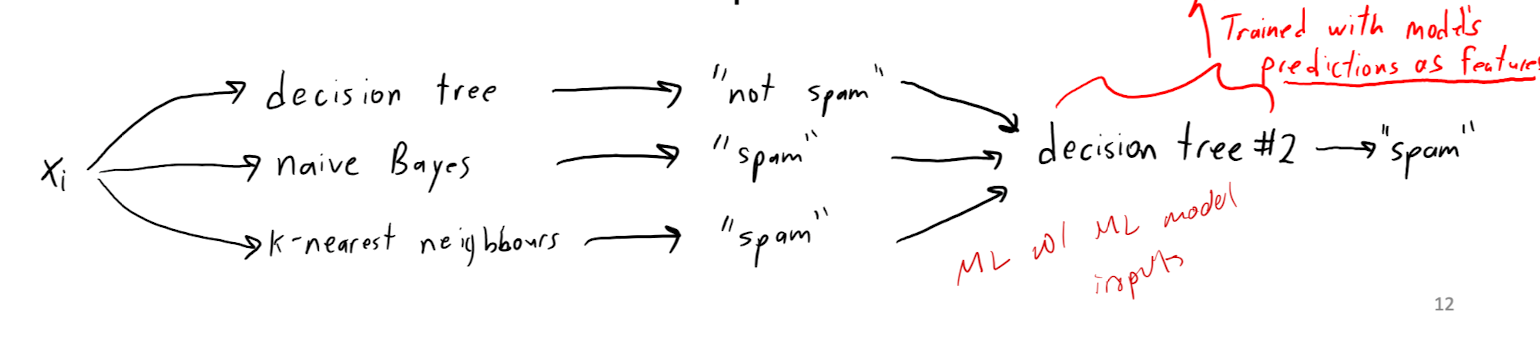 Trained with model's
predictions as feature
xi
decision tree
"not spam"
naive Bayes
"spam"
k-nearest neighbours
"spam"
decision tree #2
"spam"
ML w/ ML model
inputs
12